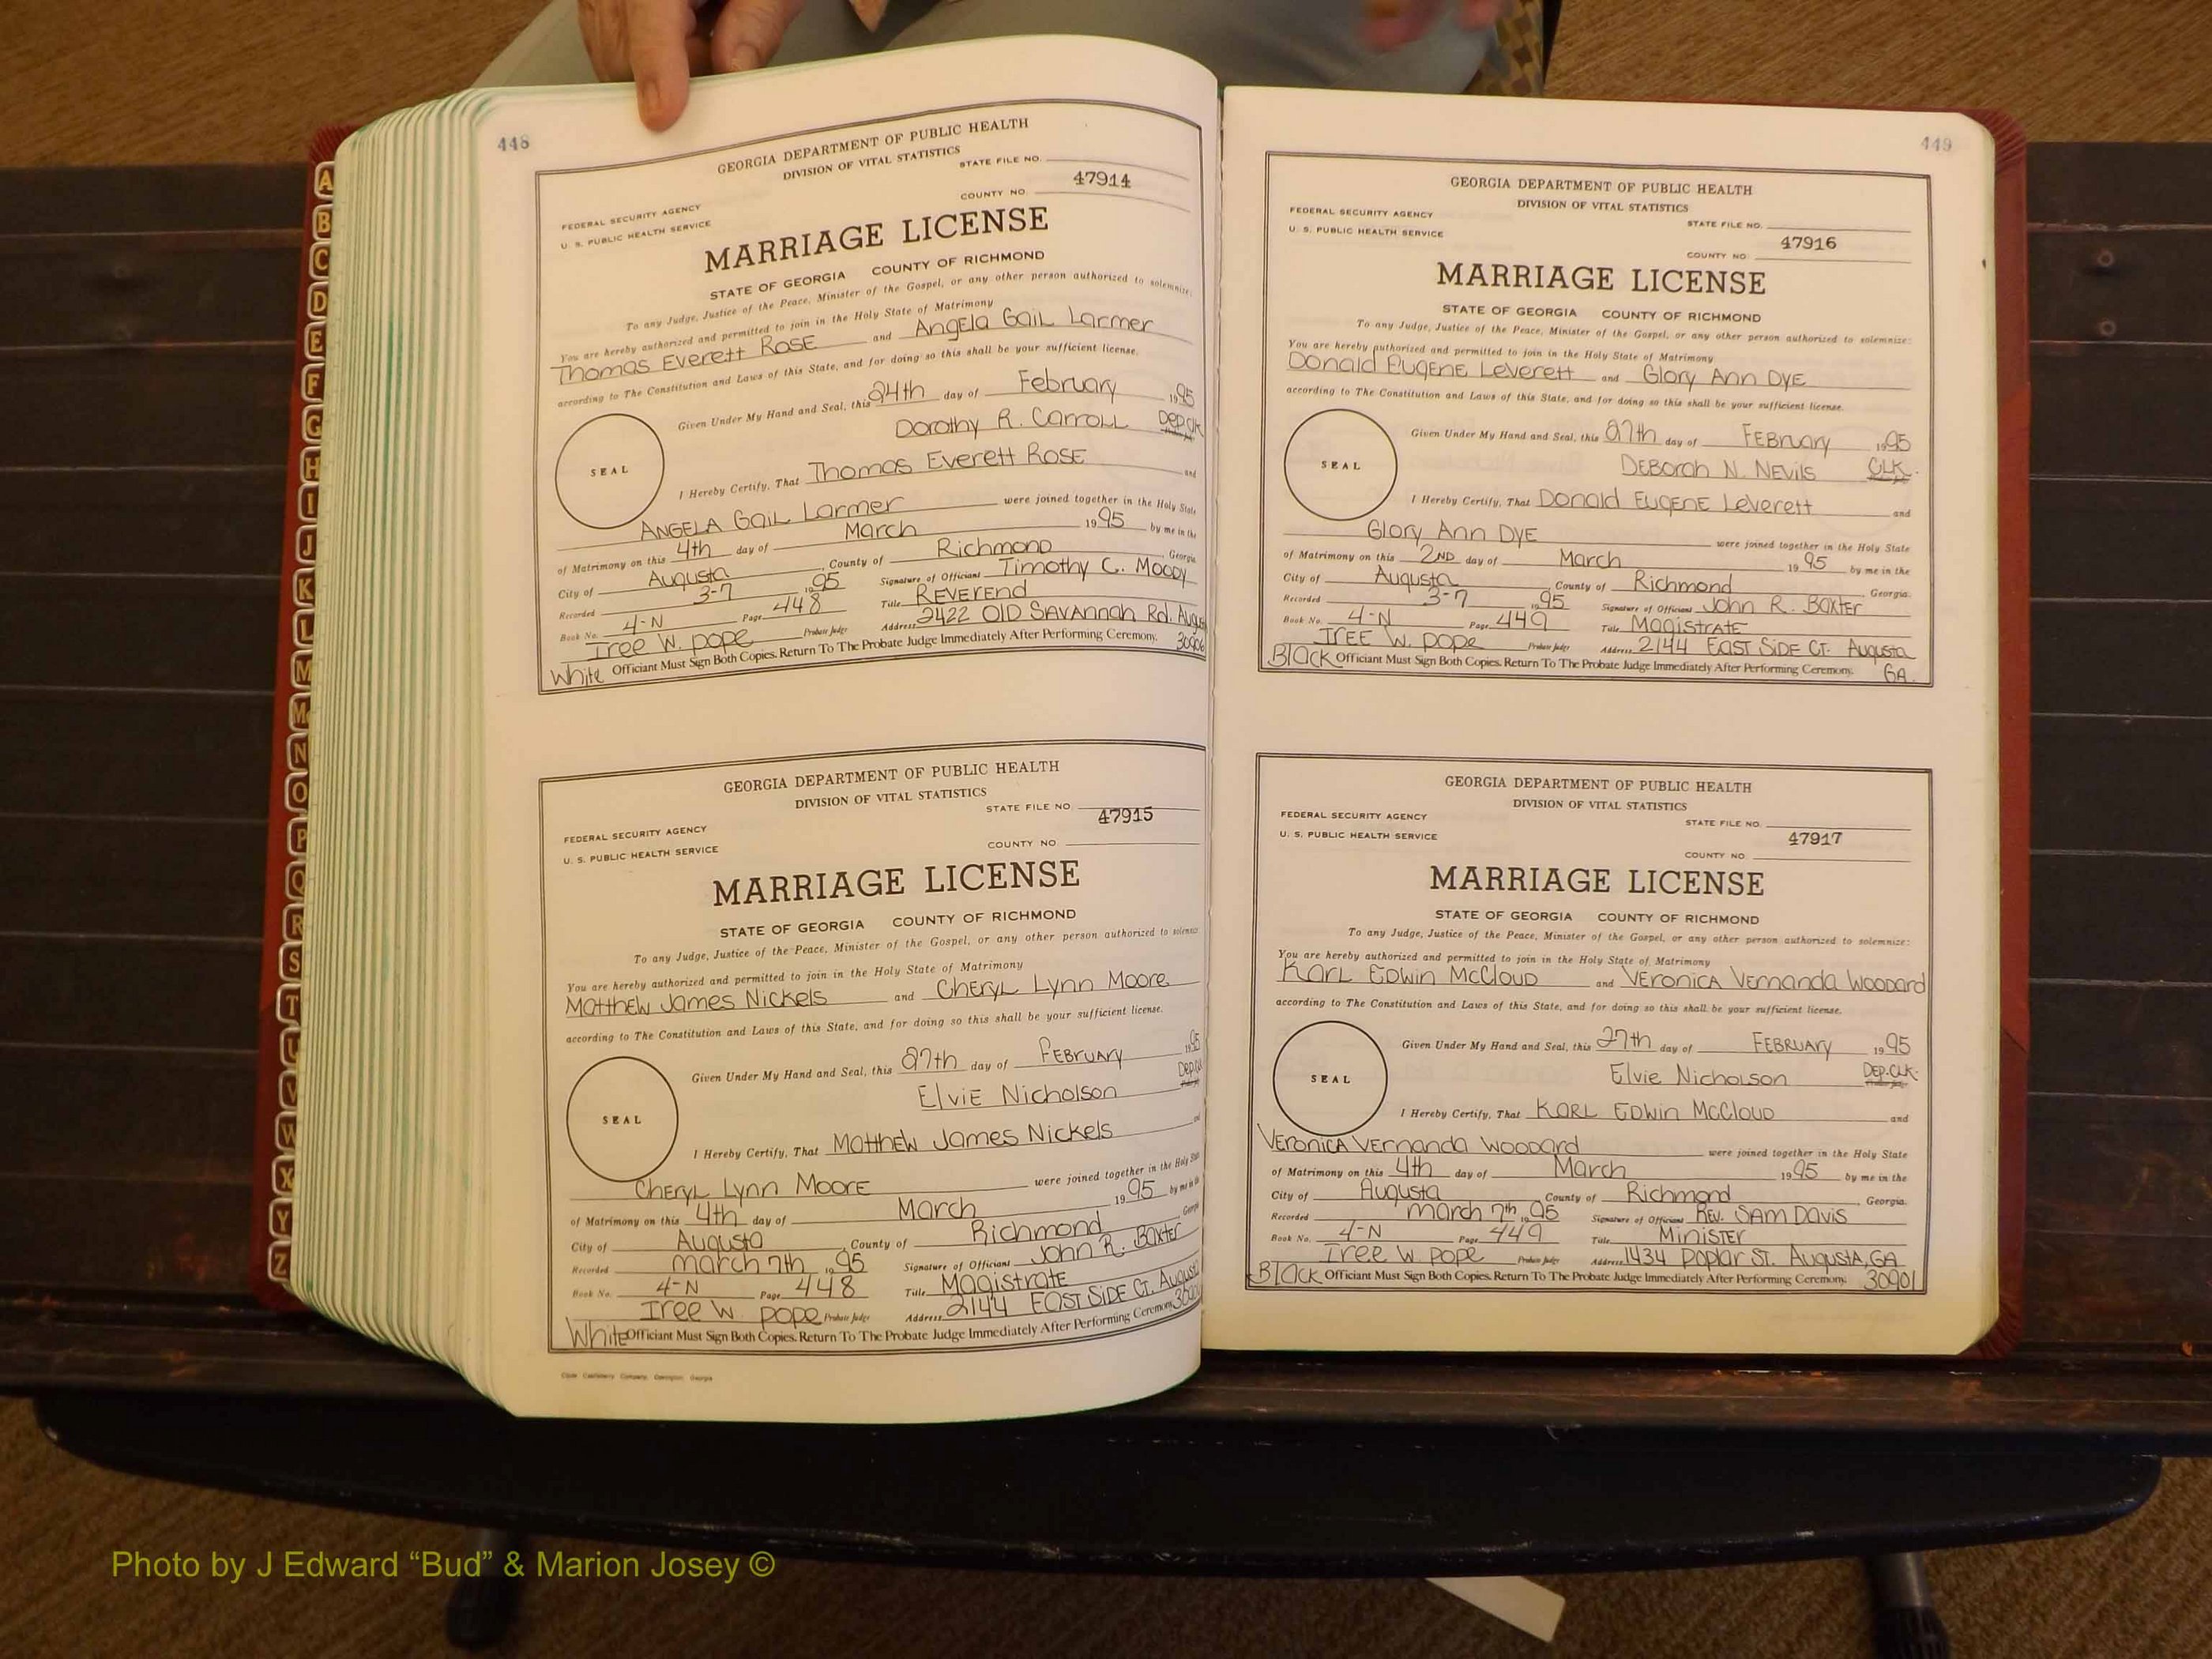 A
B
C
D
E
F
G
H
I
J
K
L
M
Mc
N
O
P
Q
R
S
T
U
V
W
X
Y
Z
448
GEORGIA DEPARTMENT OF PUBLIC HEALTH
DIVISION OF VITAL STATISTICS
STATE FILE NO.
47914
COUNTY NO
FEDERAL SECURITY AGENCY
U. S. PUBLIC HEALTH SERVICE
MARRIAGE LICENSE
STATE OF GEORGIA COUNTY OF RICHMOND
To any Judge, Justice of the Peace, Minister of the Gospel, or any other person authorized to solemnize:
You are hereby authorized and permitted to join in the Holy State of Matrimony
Thomas Everett Rose and Angela Gail Larmer
according to The Constitution and Laws of this State, and for doing so this shall be your sufficient license.
Given Under My Hand and Seal, this 24th day of February 1995
Dorothy R. Carroll Dep.Clk
SEAL
I Hereby Certify, That Thomas Everett Rose and
Angela Gail Larmer were joined together in the Holy State
of Matrimony on this 4th day of March 1995 by me in the
City of Augusta, County of Richmond Georgia
Recorded 3-7 1995 Signature of Officiant Timothy C. Moody
Book No. 4-N Page 448 Title Reverend
Iree W. Pope Probate Judge Address 2422 Old Savannah Rd. Augusta
White Officiant Must Sign Both Copies. Return To The Probate Judge Immediately After Performing Ceremony. 30906
GEORGIA DEPARTMENT OF PUBLIC HEALTH
DIVISION OF VITAL STATISTICS
STATE FILE NO
47915
FEDERAL SECURITY AGENCY
U. S. PUBLIC HEALTH SERVICE
COUNTY NO
MARRIAGE LICENSE
STATE OF GEORGIA COUNTY OF RICHMOND
To any Judge, Justice of the Peace, Minister of the Gospel, or any other person authorized to solemnize:
You are hereby authorized and permitted to join in the Holy State of Matrimony
Matthew James Nickels and Cheryl Lynn Moore
according to The Constitution and Laws of this State, and for doing so this shall be your sufficient license.
Given Under My Hand and Seal, this 27th day of February 1995
Elvie Nicholson Dep.Clk
SEAL
I Hereby Certify, That Matthew James Nickels and
Cheryl Lynn Moore were joined together in the Holy State
of Matrimony on this 4th day of March 1995 by me in the
City of Augusta, County of Richmond Georgia
Recorded March 7th 1995 Signature of Officiant John R. Baxter
Book No. 4-N Page 448 Title Magistrate
Iree W. Pope Probate Judge Address 2144 East Side Ct. Augusta
White Officiant Must Sign Both Copies. Return To The Probate Judge Immediately After Performing Ceremony.
449
GEORGIA DEPARTMENT OF PUBLIC HEALTH
DIVISION OF VITAL STATISTICS
FEDERAL SECURITY AGENCY
U. S. PUBLIC HEALTH SERVICE
STATE FILE NO.
47916
COUNTY NO
MARRIAGE LICENSE
STATE OF GEORGIA COUNTY OF RICHMOND
To any Judge, Justice of the Peace, Minister of the Gospel, or any other person authorized to solemnize:
You are hereby authorized and permitted to join in the Holy State of Matrimony
Donald Eugene Leverett and Glory Ann Dye
according to The Constitution and Laws of this State, and for doing so this shall be your sufficient license.
Given Under My Hand and Seal, this 27th day of February 1995
Deborah N. Nevils CLK.
SEAL
I Hereby Certify, That Donald Eugene Leverett and
Glory Ann Dye were joined together in the Holy State
of Matrimony on this 2nd day of March 1995 by me in the
City of Augusta County of Richmond Georgia.
Recorded 3-7 1995 Signature of Officiant John R. Baxter
Book No. 4-N Page 449 Title Magistrate
Iree W. Pope Probate Judge Address 2144 East Side Ct. Augusta
Black Officiant Must Sign Both Copies. Return To The Probate Judge Immediately After Performing Ceremony. GA.
GEORGIA DEPARTMENT OF PUBLIC HEALTH
DIVISION OF VITAL STATISTICS
FEDERAL SECURITY AGENCY
U. S. PUBLIC HEALTH SERVICE
STATE FILE NO.
47917
COUNTY NO
MARRIAGE LICENSE
STATE OF GEORGIA COUNTY OF RICHMOND
To any Judge, Justice of the Peace, Minister of the Gospel, or any other person authorized to solemnize:
You are hereby authorized and permitted to join in the Holy State of Matrimony
Karl Edwin McCloud and Veronica Vernanda Woodard
according to The Constitution and Laws of this State, and for doing so this shall be your sufficient license.
Given Under My Hand and Seal, this 27th day of February 1995
Elvie Nicholson Dep.Clk.
SEAL
I Hereby Certify, That Karl Edwin McCloud and
Veronica Vernanda Woodard were joined together in the Holy State
of Matrimony on this 4th day of March 1995 by me in the
City of Augusta County of Richmond Georgia.
Recorded March 7th 1995 Signature of Officiant Rev. Sam Davis
Book No. 4-N Page 449 Title Minister
Iree W. Pope Probate Judge Address 1434 Poplar St. Augusta, GA
Black Officiant Must Sign Both Copies. Return To The Probate Judge Immediately After Performing Ceremony. 30901
Photo by J Edward “Bud” & Marion Josey ©